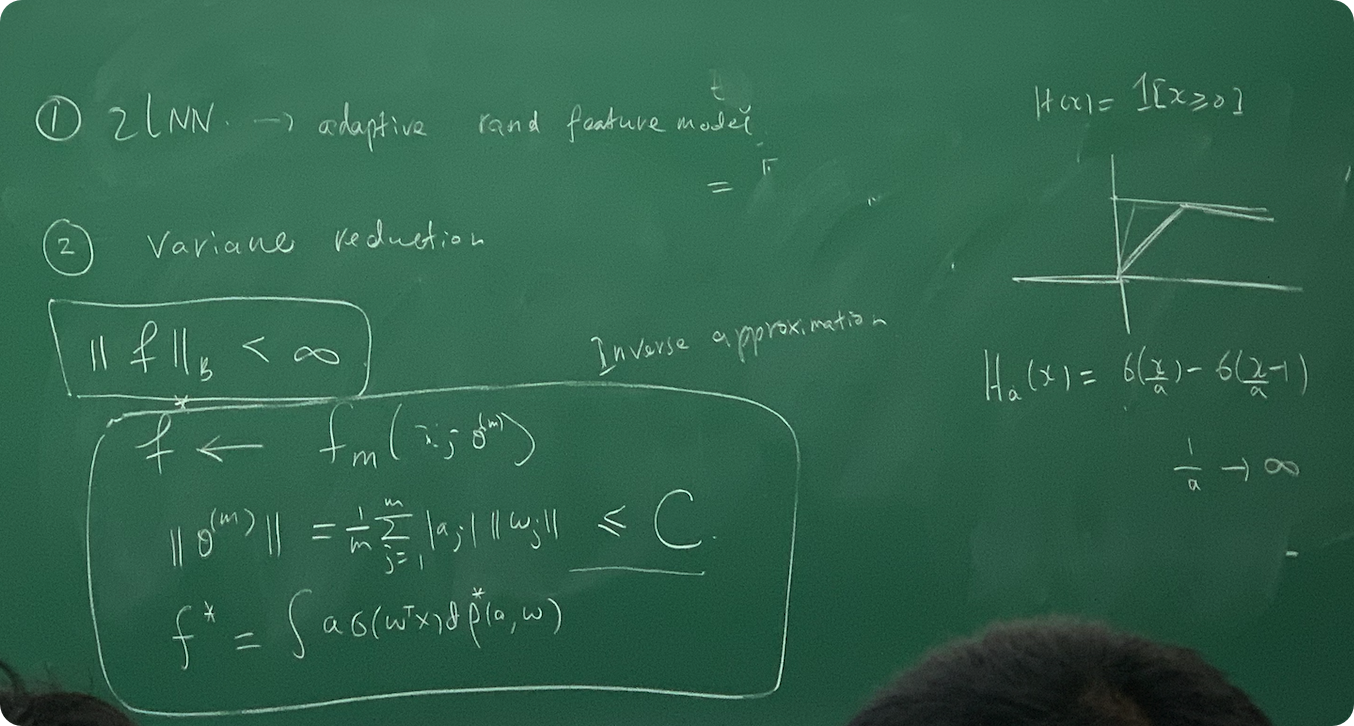 ① 2LNN. → adaptive rand feature model
=
② Variane reduction
‖f‖_B < ∞
Inverse approximation
f* ← f_m(x; θ^(m))
‖θ^(m)‖ = 1/m ∑_{j=1}^m |a_j| ‖w_j‖ ≤ C.
f* = ∫ a σ(w^T x) d ρ*(a, w)
H(x) = 1[x ≥ 0]
H_a(x) = σ(x/a) - σ(x/a - 1)
1/a → ∞